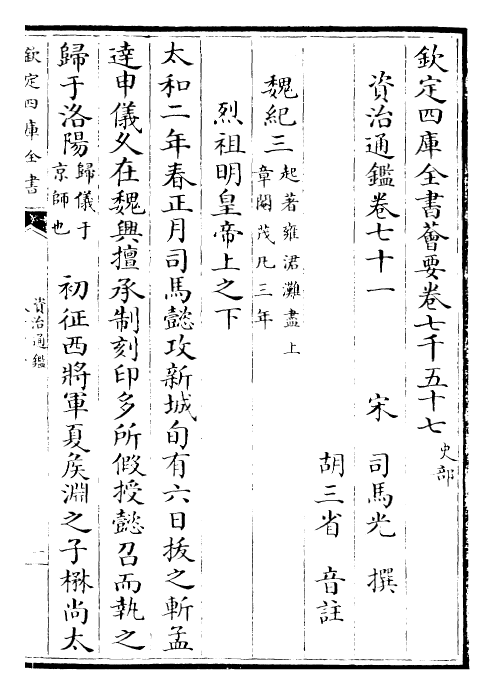 欽定四庫全書薈要卷七千五十七 史部
資治通鑑卷七十一
宋 司馬光 撰
胡三省 音註
魏紀三 起著雍涒灘盡上章閹茂凡三年
烈祖明皇帝上之下
太和二年春正月司馬懿攻新城旬有六日拔之斬孟
達申儀久在魏興擅承制刻印多所假授懿召而執之
歸于洛陽 歸儀于京師也 初征西將軍夏矦淵之子楙尚太
欽定四庫全書
資治通鑑
一